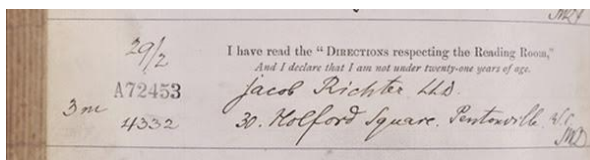 29/2
I have read the "DIRECTIONS respecting the Reading Room,"
And I declare that I am not under twenty-one years of age.
A72453
Jacob Richter LLD.
3 m
4332
30. Holford Square. Pentonville. W.C.